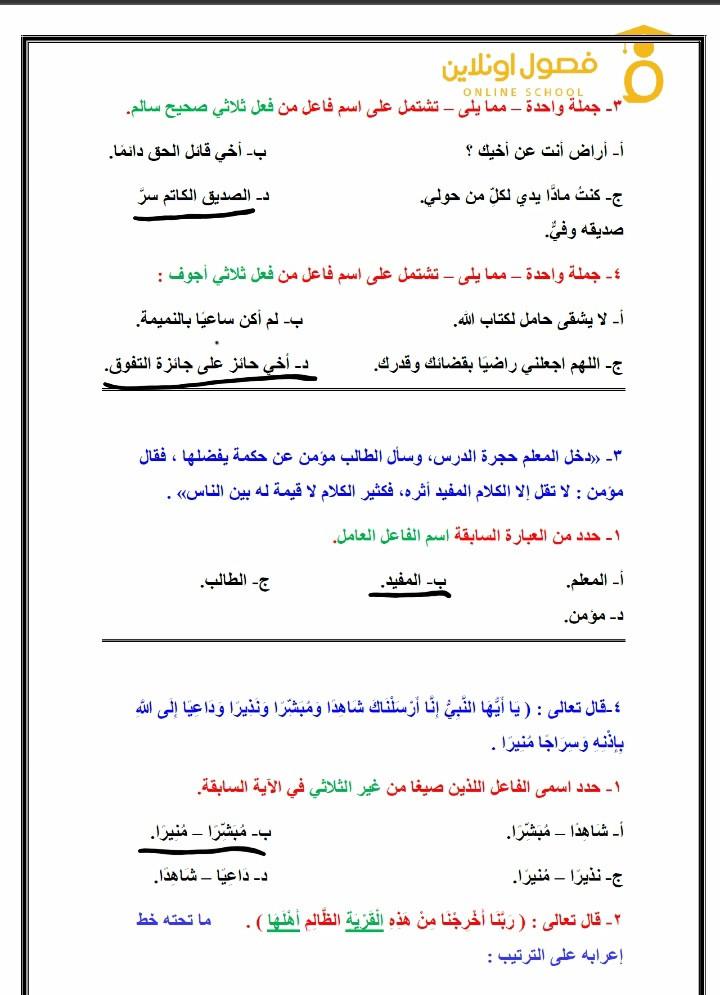 فصول اونلاين
ONLINE SCHOOL
٣- جملة واحدة – مما يلى – تشتمل على اسم فاعل من فعل ثلاثي صحيح سالم.
أ- أراض أنت عن أخيك ؟ ب- أخي قائل الحق دائمًا.
ج- كنتُ مادًّا يدي لكلِّ من حولي. د- الصديق الكاتم سرَّ
صديقه وفيٌّ.
٤- جملة واحدة – مما يلى – تشتمل على اسم فاعل من فعل ثلاثي أجوف :
أ- لا يشقى حامل لكتاب الله. ب- لم أكن ساعيًا بالنميمة.
ج- اللهم اجعلني راضيًا بقضائك وقدرك. د- أخي حائز على جائزة التفوق.
٣- «دخل المعلم حجرة الدرس، وسأل الطالب مؤمن عن حكمة يفضلها ، فقال
مؤمن : لا تقل إلا الكلام المفيد أثره، فكثير الكلام لا قيمة له بين الناس» .
١- حدد من العبارة السابقة اسم الفاعل العامل.
أ- المعلم. ب- المفيد. ج- الطالب.
د- مؤمن.
٤-قال تعالى : ( يَا أَيُّهَا النَّبِيُّ إِنَّا أَرْسَلْنَاكَ شَاهِدًا وَمُبَشِّرًا وَنَذِيرًا وَدَاعِيًا إِلَى اللَّهِ
بِإِذْنِهِ وَسِرَاجًا مُنِيرًا .
١- حدد اسمى الفاعل اللذين صيغا من غير الثلاثي في الآية السابقة.
أ- شَاهِدًا – مُبَشِّرًا. ب- مُبَشِّرًا – مُنِيرًا.
ج- نَذِيرًا – مُنِيرًا. د- دَاعِيًا – شَاهِدًا.
٢- قال تعالى : ( رَبَّنَا أَخْرِجْنَا مِنْ هَذِهِ الْقَرْيَةِ الظَّالِمِ أَهْلُهَا ) . ما تحته خط
إعرابه على الترتيب :